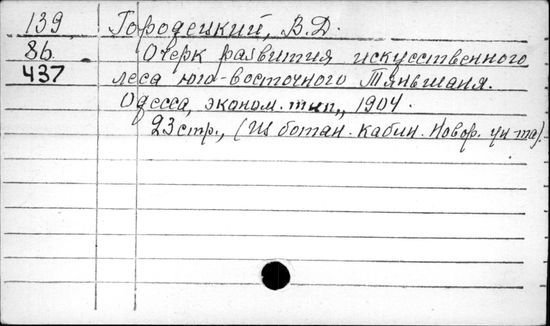 139 Городецкий, В.Д.
8б. Очерк развития искусственного
437 леса юго-восточного Тяньшаня.
Одесса, эконом. тип., 1904.
23 стр., (Из ботан. кабин. Новор. ун та).